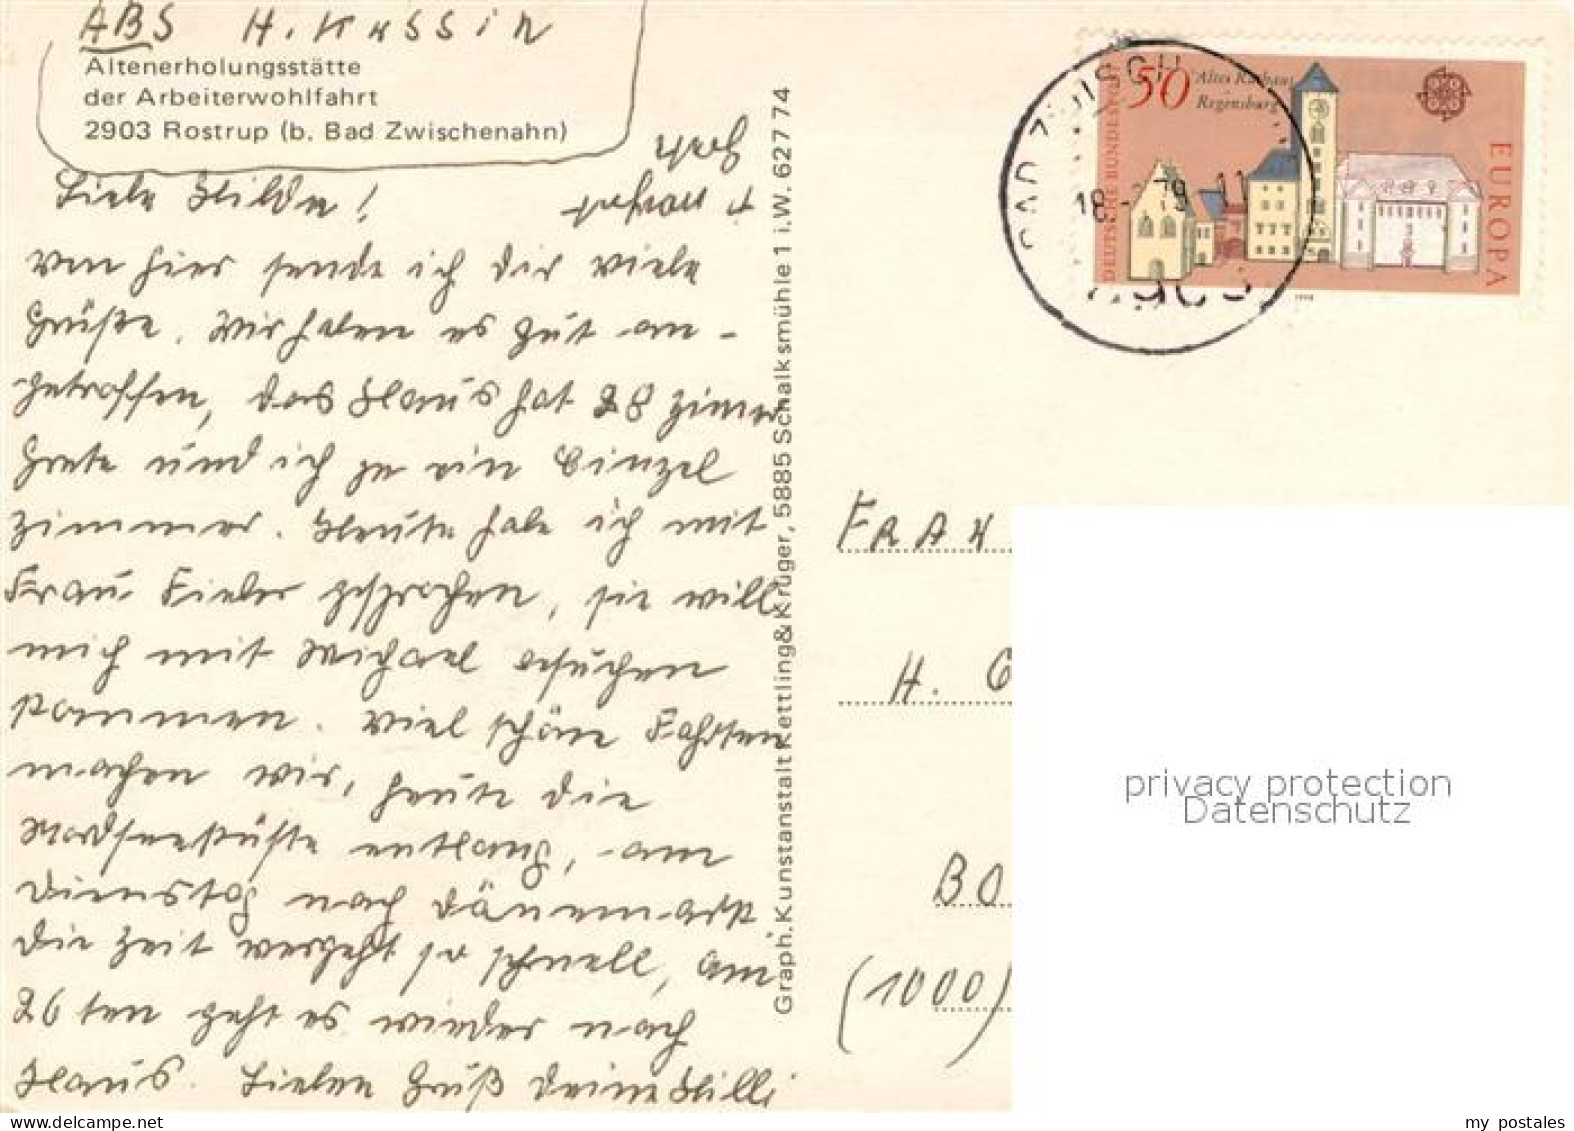 ABS H. Kussin
Altenerholungsstätte
der Arbeiterwohlfahrt
2903 Rostrup (b. Bad Zwischenahn)
Liebe Hilde!
von hier sende ich dir viele
Grüße. Wir haben es gut an-
getroffen, das Haus hat 28 Zimer
Grete und ich je ein Einzel
zimmer. Heute habe ich mit
Frau Fieber gesprochen, sie will
mich mit Michael besuchen
kommen. Viel schöne Fahrten
machen wir, heute die
Nordseeküste entlang, am
Dienstag nach Dänemark.
Die Zeit vergeht so schnell, am
26 ten geht es wieder nach
Haus. Lieben Gruß Deine Hilli
Graph. Kunstanstalt Kettling & Krüger, 5885 Schalksmühle 1 i.W. 627 74
BAD ZWISCH
18.-  79-11
50 Altes Rathaus
Regensburg
DEUTSCHE BUNDESPOST
EUROPA
1978
FRAU
H. G
BO
(1000)
privacy protection
Datenschutz
my postales